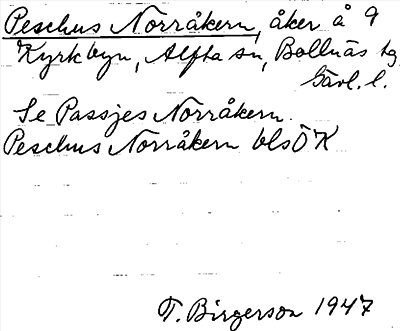 Peschus Norråkern, åker å 9
Kyrkbyn, Alfta sn, Bollnäs tg
Gävl. l.
Se Passjes Norråkern.
Peschus Norråkern blsÖK
T. Birgerson 1947